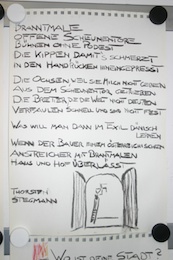 BRANNTMALTE
OFFENE SCHEUNENTORE
BÜHNEN OHNE PODEST
DIE KIPPEN DAMIT'S SCHMERZT
IN DEN HANDRÜCKEN EINGEPRESST
DIE OCHSEN WEIL SIE MILCH NICHT GEBEN
AUS DEM SCHEUNENTOR GETRIEBEN
DIE BRETTER DIE DIE WELT NICHT DEUTEN
VERFAULEN SCHNELL UND SAG NICHT FEST
WAS WILL MAN DANN IM EXIL DÄNISCH
LERNEN
WENN DER BAUER EINEM ÖSTERREICHISCHEN
ANSTREICHER MIT BRANDMALEN
HAUS UND HOF ÜBERLÄSST
THORSTEN
STEGMANN
WO IST DEINE STADT?